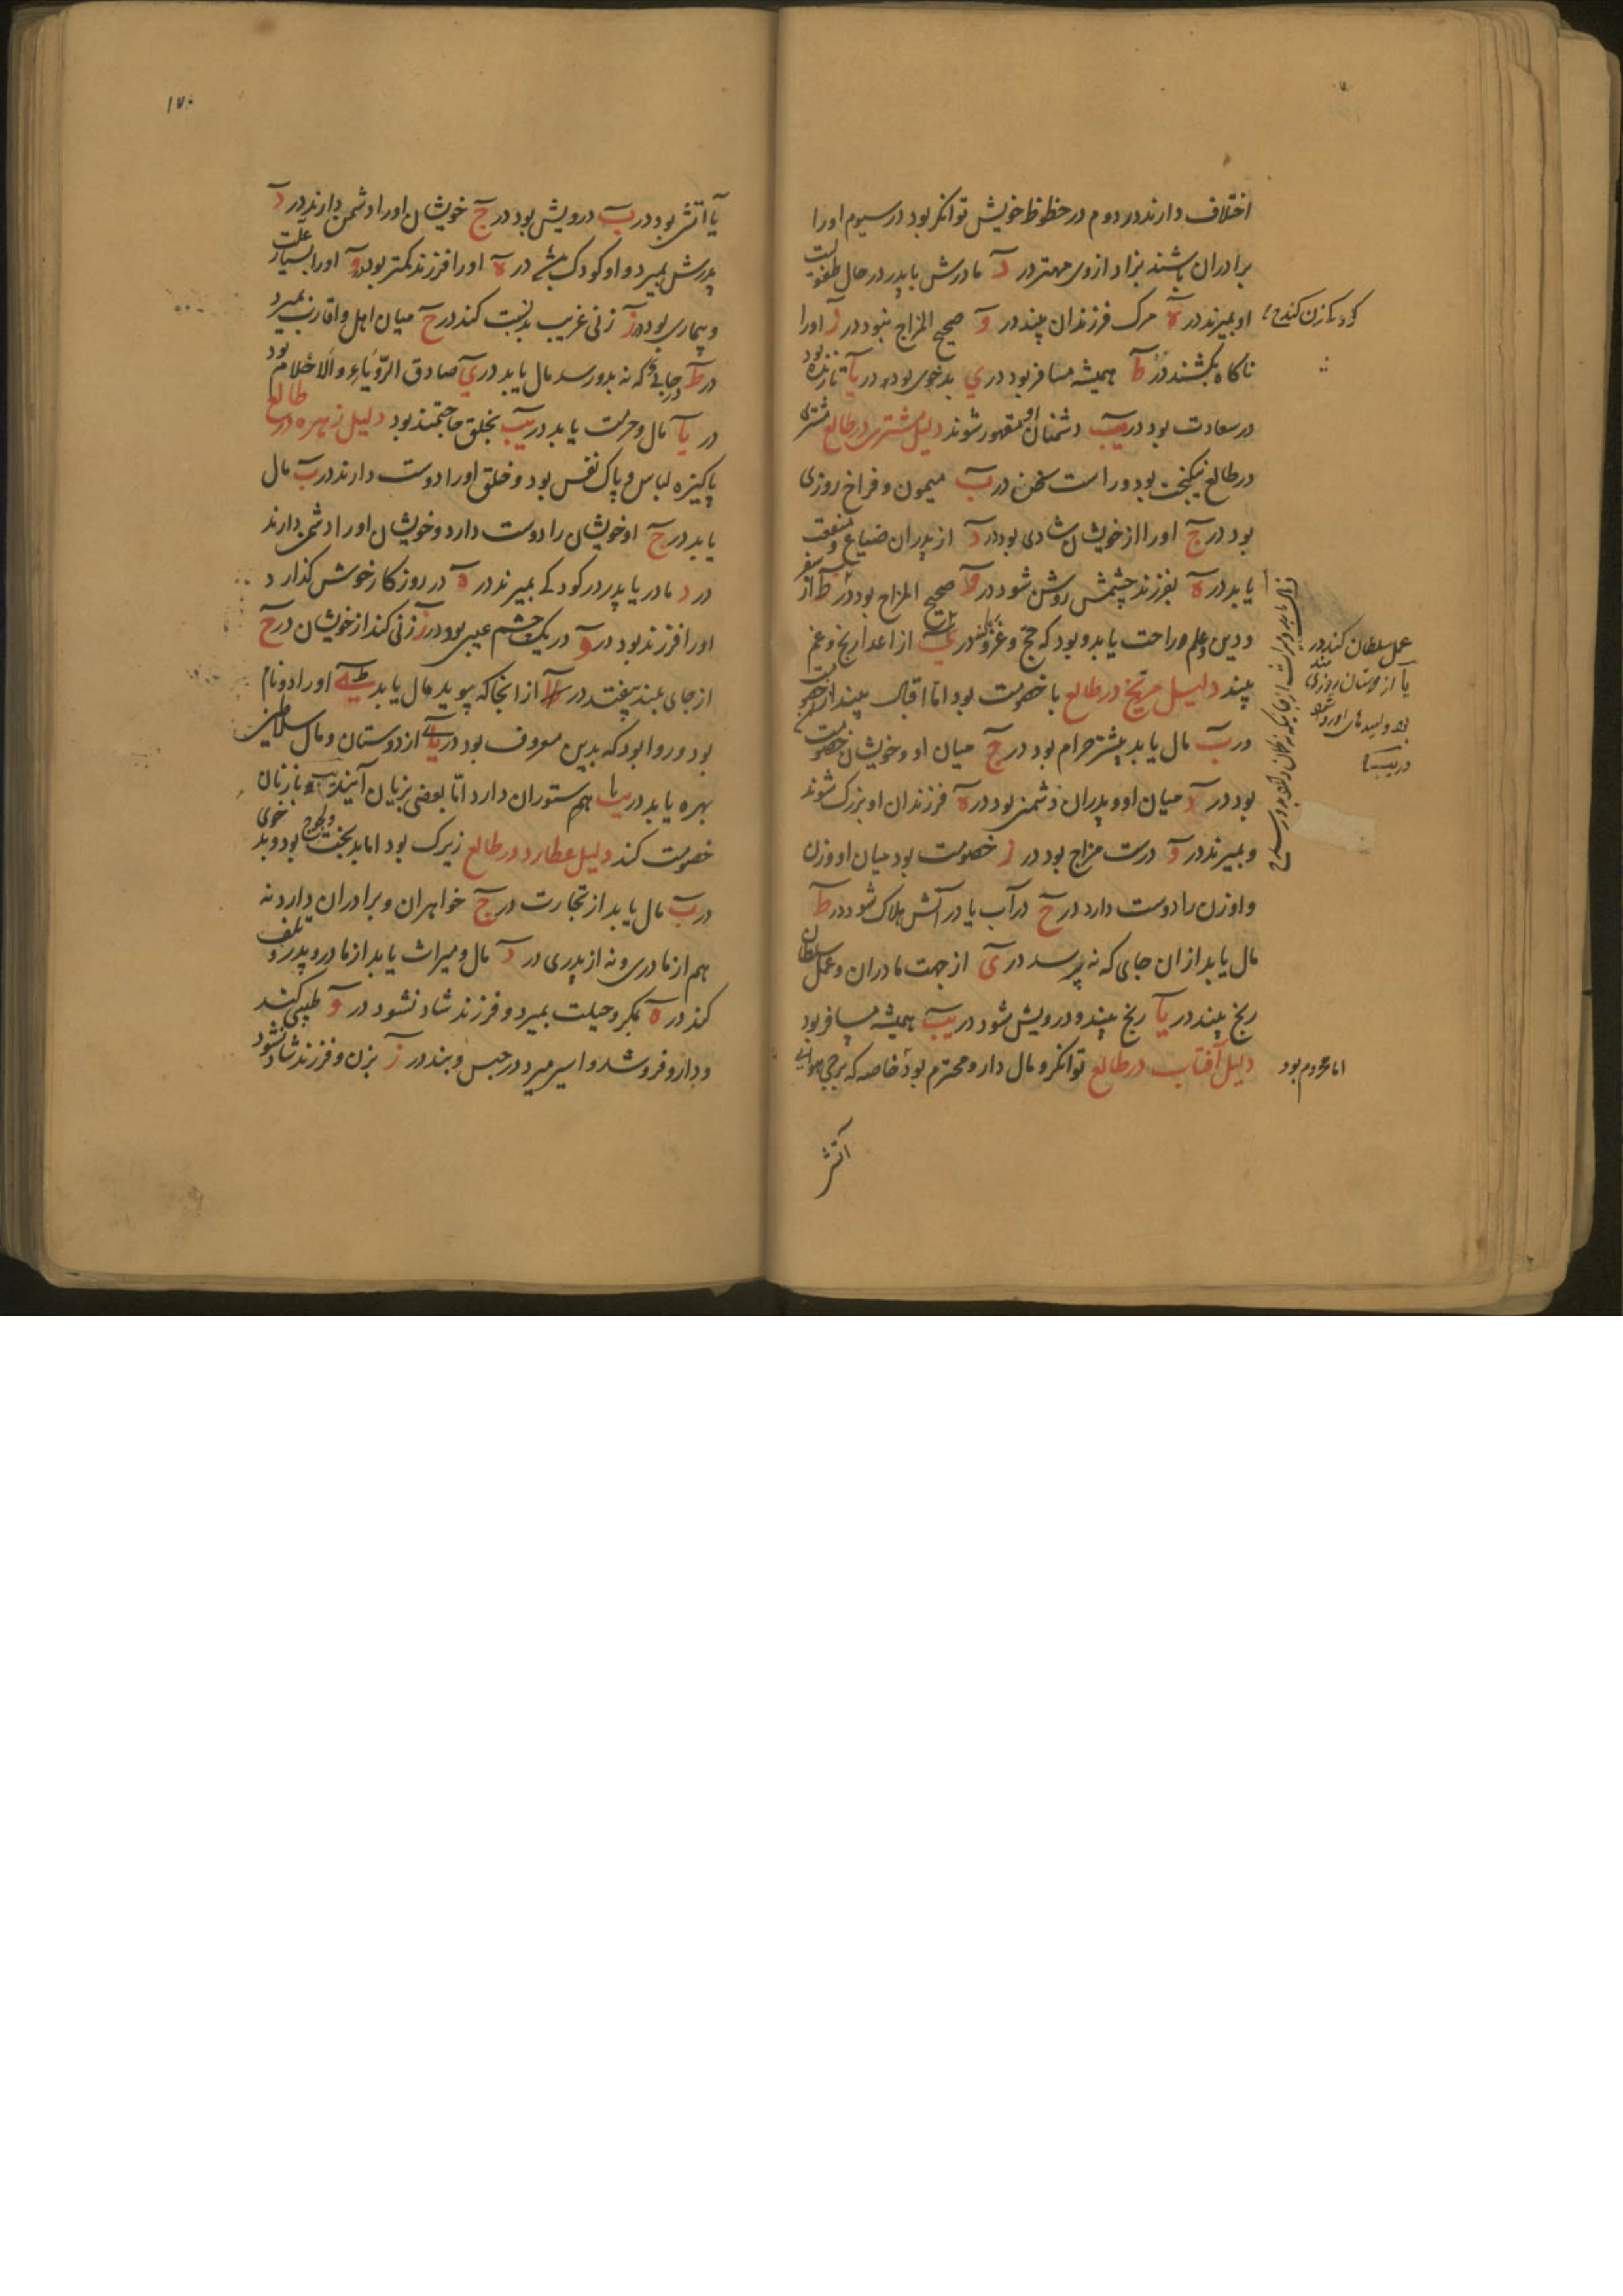 اختلاف دارند در دوم در حظوظ خویش توانکر بود در سیوم اورا
برادران باشند بزاد از وی مهتر در د مادرش با پدر در حال طفولیت
او بمیرند در ه مرک فرزندان بیند در و صحیح المزاج نبود در ز اورا
ناکاه بکشند در ط همیشه مسافر بود در ی بدخوی بود در یا تا زنده بود
در سعادت بود در یب دشمنان او مقهور شوند دلیل مشتری در طالع مشتری
در طالع نیکبخت بود و راست سخن در ب میمون و فراخ روزی
بود در ج اورا از خویشان شادی بود در د از پدران ضیاع و منفعت
یابد در ه بفرزند چشمش روشن شود در و صحیح المزاج بود در ط از سفر
و دین و علم و راحت یابد و بود که حج و غزو کند در یب از اعدا رنج و غم
بیند دلیل مریخ در طالع با خصومت بود اما اقبال بیند از خصومت
در ب مال یابد بیشتر حرام بود در ج میان او و خویشان خصومت
بود در د میان او و پدران دشمنی بود در ه فرزندان او بزرک شوند
و بمیرند در و درست مزاج بود در ز خصومت بود میان او و زن
و او زن را دوست دارد در ح در آب یا در آتش هلاک شود در ط
مال یابد از ان جای که نه پرسد در ی از جهت مادران و عمل سلطان
رنج بیند در یا رنج بیند و درویش شود در یب همیشه مسافر بود
دلیل آفتاب در طالع توانکر و مال دار و محترم بود خاصه که برجی هوایی
آتش
عمل سلطان کند در
یا از دوستان روزی مند
بود و امیدهای او روا شود
در یب
اما محروم بود
۱۷۰
یا آتشی بود در ب درویش بود در ج خویشان اورا دشمن دارند در د
پدرش بمیرد و او کودک باشد در ه اورا فرزند کمتر بود در و اورا بسیار علت
و بیماری بود در ز زنی غریب بدست کند در ح میان اهل و اقارب بمیرد
در ط در جایی که نه بدو رسد مال یابد در ی صادق الرؤیا و الاحلام بود
در یا مال و حرمت یابد در یب بخلق حاجتمند بود دلیل زهره در طالع
پاکیزه لباس و پاک نفس بود و خلق اورا دوست دارند در ب مال
یابد در ج او خویشان را دوست دارد و خویشان اورا دشمن دارند
در د مادر یا پدر در کودکی بمیرند در ه در روزکار خوش کذارد
اورا فرزند بود در و در یک چشم عیبی بود در ز زنی کند از خویشان در ح
از جای بلند بیفتد در از انجا که بپوید مال یابد اورا دو نام
بود و روا بود که بدین معروف بود در یا از دوستان و مال سلاطین
بهره یابد در یب هم ستوران دارد اما بعضی بزیان آیند با زنان
خصومت کند دلیل عطارد در طالع زیرک بود اما بدبخت بود و بد خوی
در ب مال یابد از تجارت در ج خواهران و برادران دارد نه
هم از مادری و نه از پدری در د مال و میراث یابد از مادر و پدر و تلف
کند در ه بمکر و حیلت بمیرد و فرزند شاد نشود در و طبیبی کند
و دارو فروشد و اسیر میرد در حبس و بند در ز بزن و فرزند شاد نشود